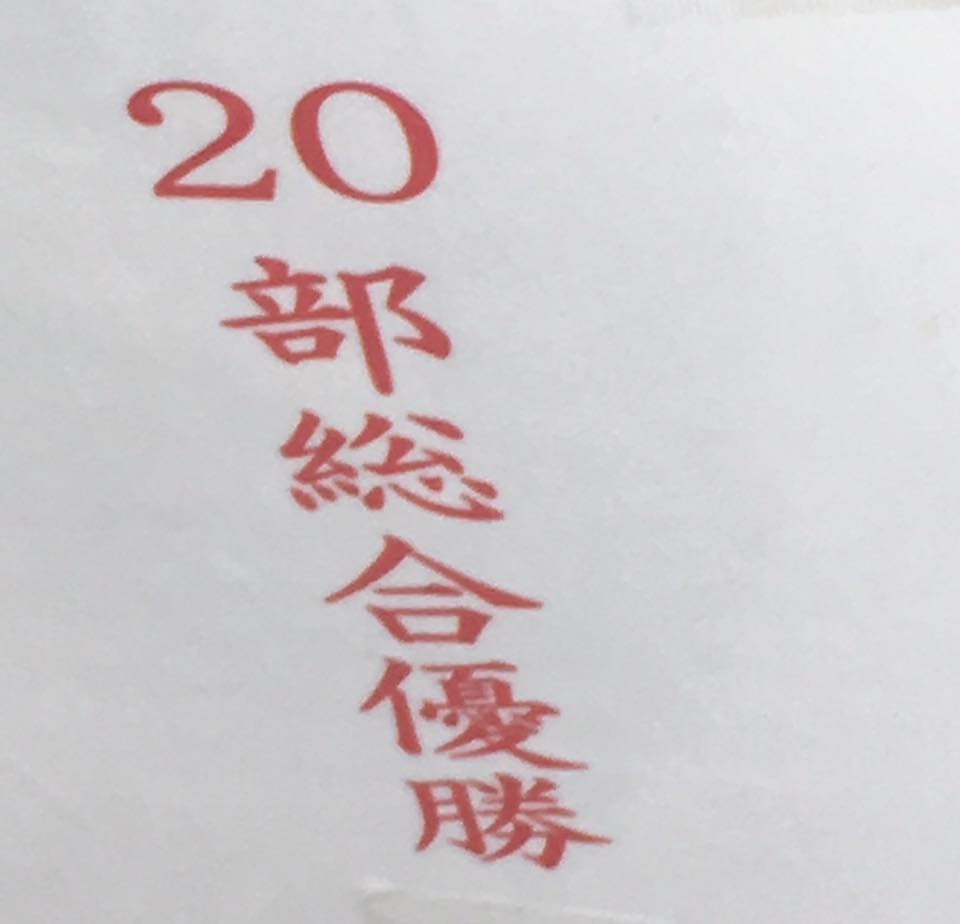 20部総合優勝